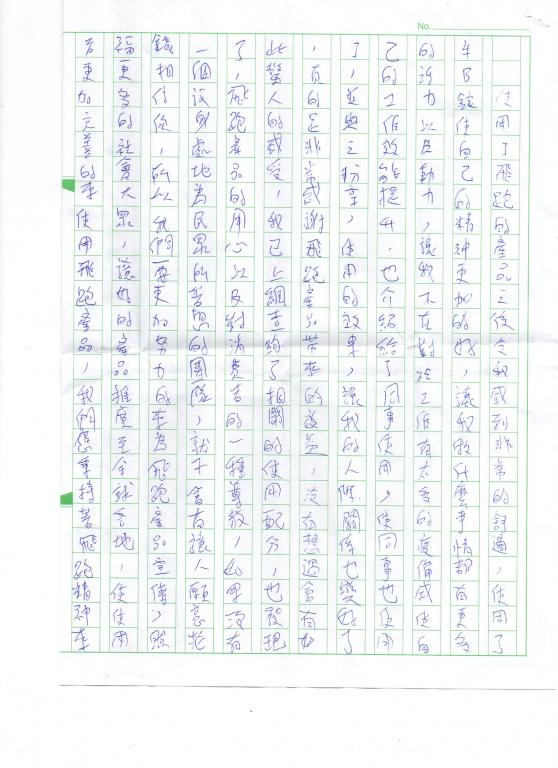 No.
使用了飛跑的產品之後令我感到非常的舒適,使用了
牛B錠使自己的精神更加的好,讓我做什麼事情都有更多
的活力以及動力,讓我不在對於工作有太多的疲倦感使自
己的工作效能提升,也介紹給了同事使用,使同事也使用
了,並與之分享,使用的效果,讓我的人際關係也變好了
,有的是非常感謝飛跑產品帶來的效益,沒有想過會有如
此驚人的感受,我已上網查詢了相關的使用配分,也發現
了,飛跑產品的用心以及對消費者的一種尊敬,如果沒有
一個設身處地為民眾所著想的團隊,就不會有讓人願意花
錢相信你,所以我們要更加努力的來為飛跑產品宣傳,照
福更多的社會大眾,讓好的產品推廣至全球各地,使使用
者更加完善的來使用飛跑產品,我們應秉持著飛跑精神來